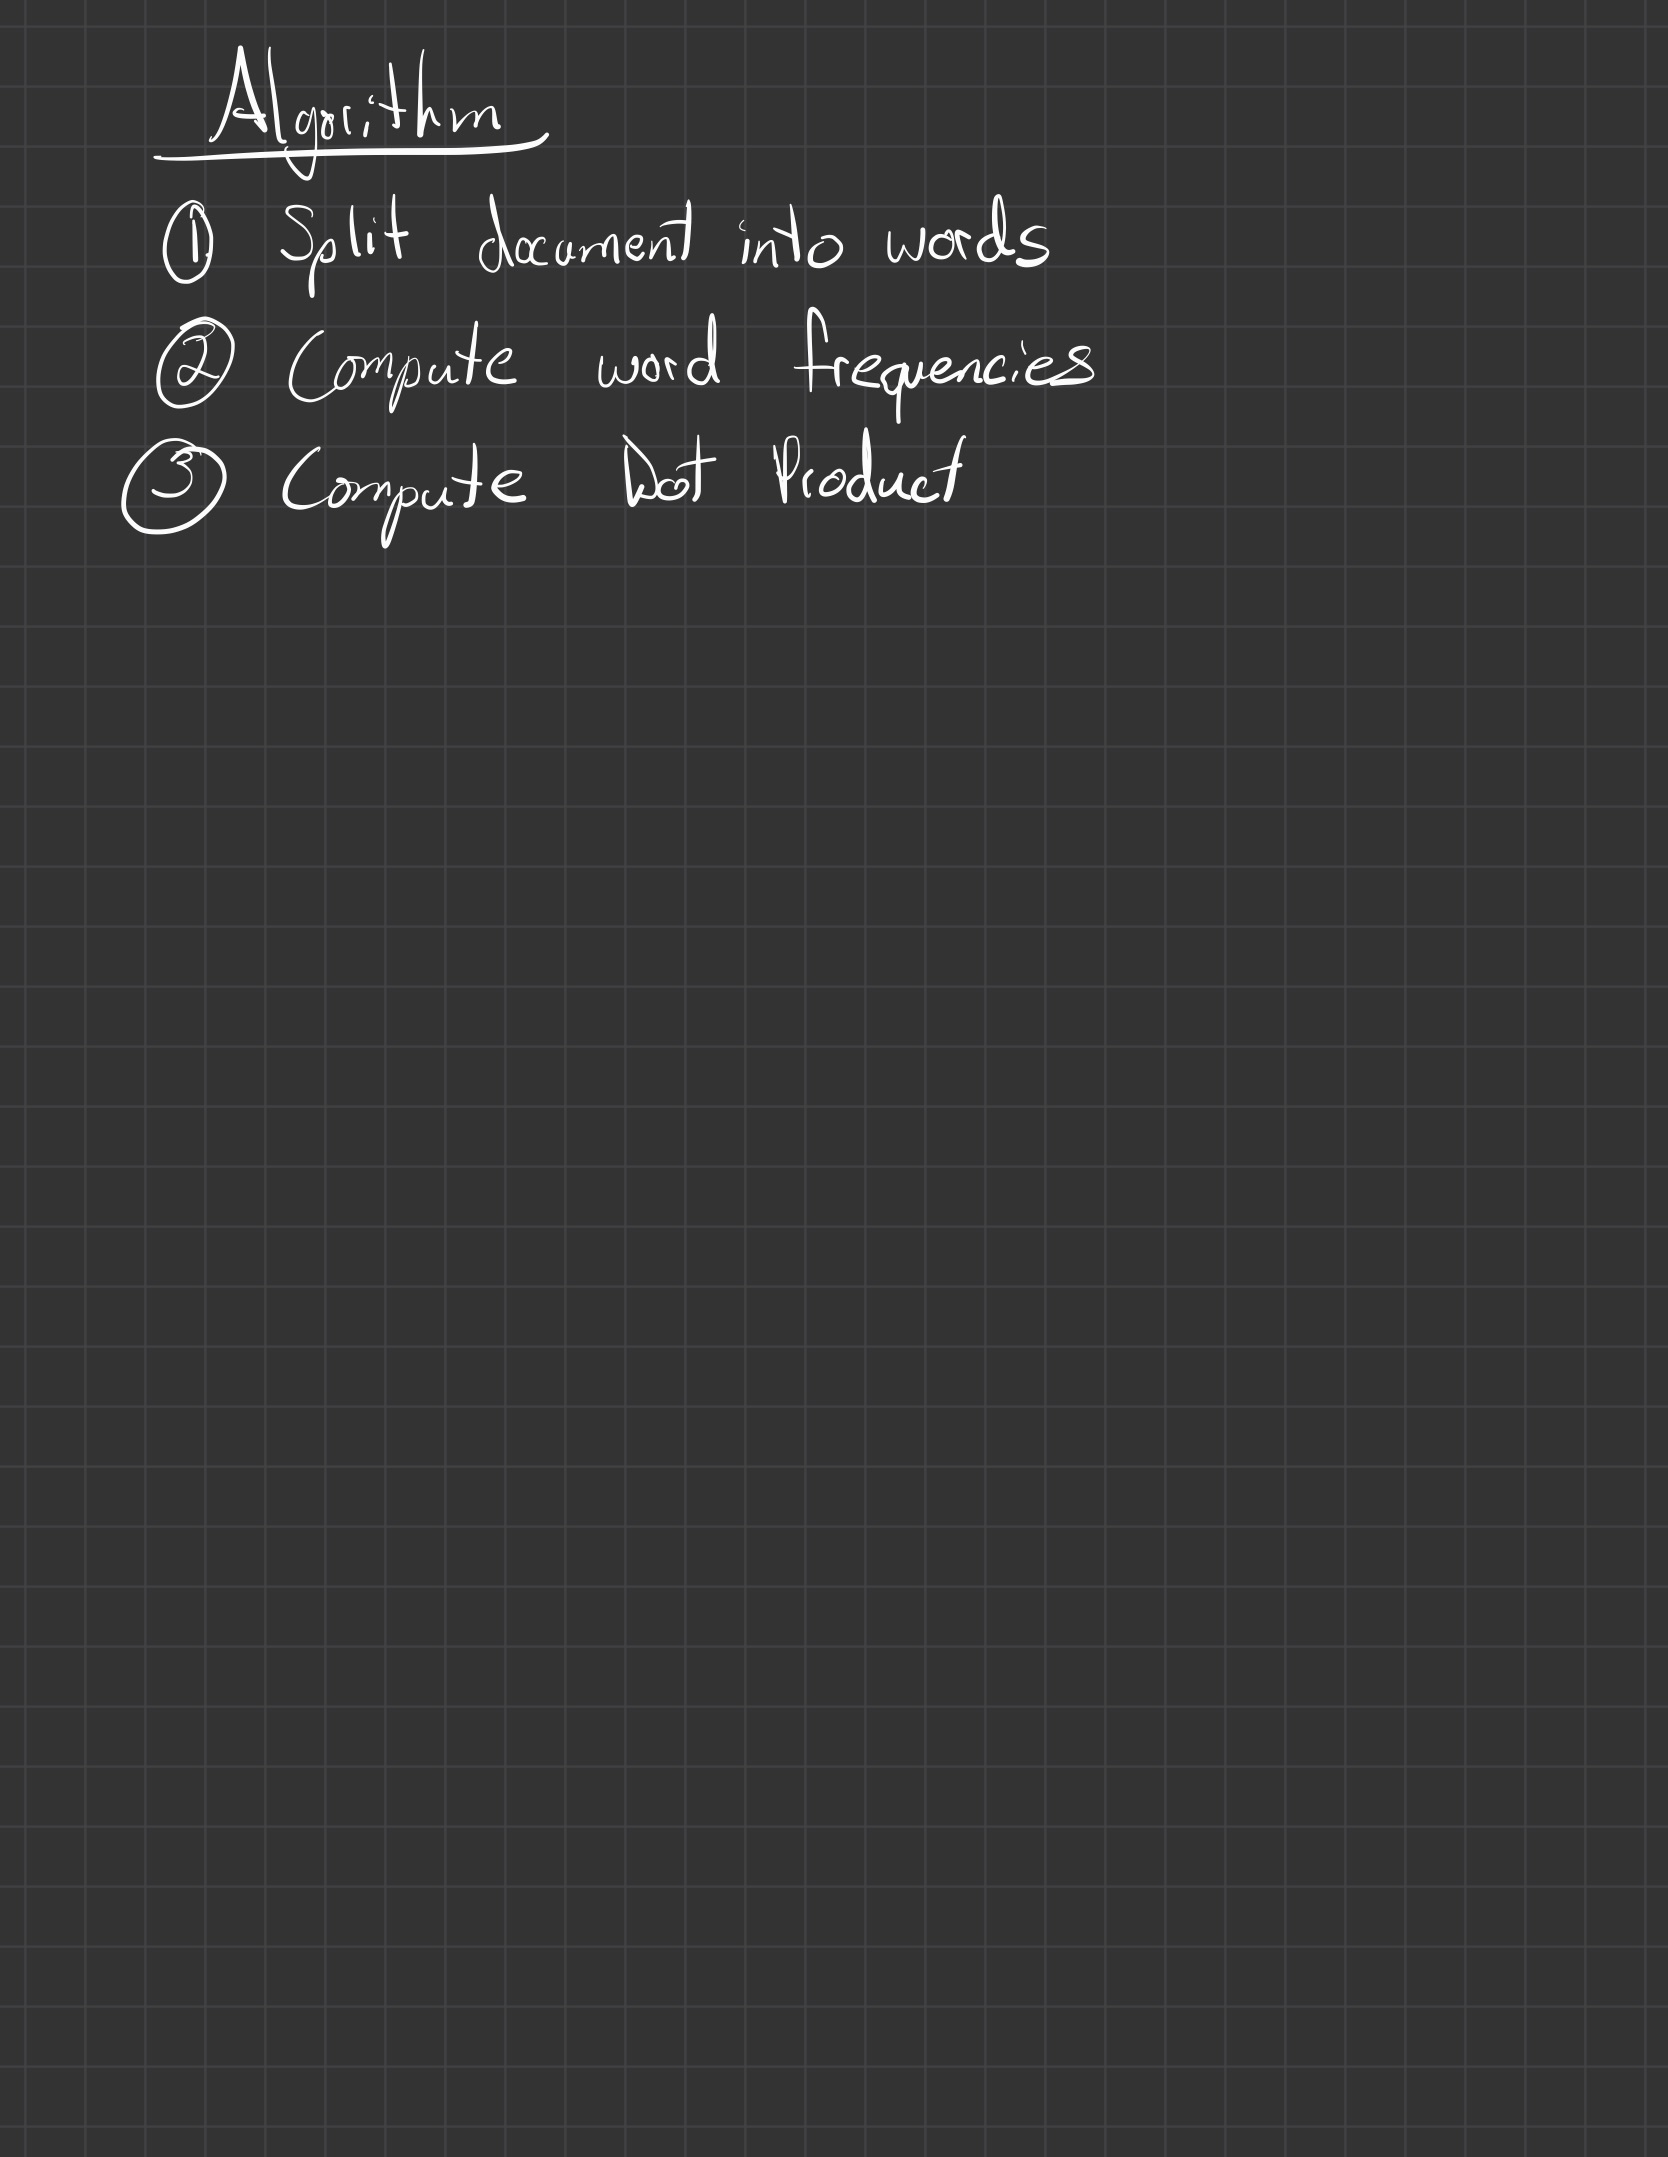 Algorithm
① Split document into words
② Compute word frequencies
③ Compute Dot Product